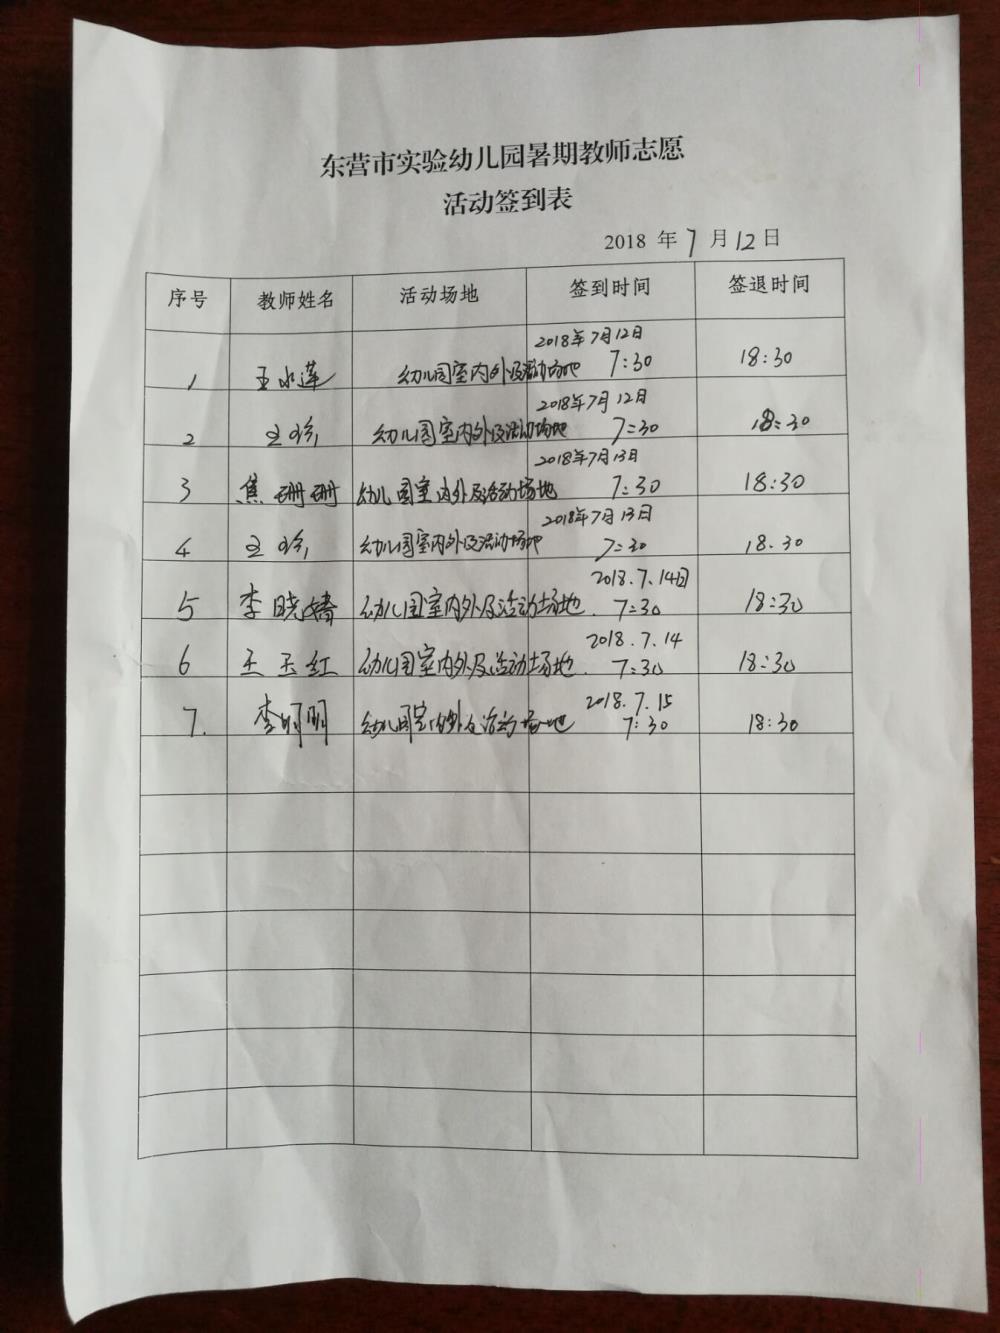 东营市实验幼儿园暑期教师志愿
活动签到表
2018 年 7 月 12 日
序号 教师姓名 活动场地 签到时间 签退时间
1 王水莲 幼儿园室内外及活动场地 2018年7月12日 7:30 18:30
2 王珍 幼儿园室内外及活动场地 2018年7月12日 7:30 18:30
3 焦珊珊 幼儿园室内外及活动场地 2018年7月13日 7:30 18:30
4 王珍 幼儿园室内外及活动场地 2018年7月13日 7:30 18.30
5 李晓 幼儿园室内外及活动场地. 2018.7.14日 7:30 18:30
6 王玉红 幼儿园室内外及活动场地. 2018.7.14 7:30 18:30
7. 李明明 幼儿园室内外及活动场地 2018.7.15 7:30 18:30